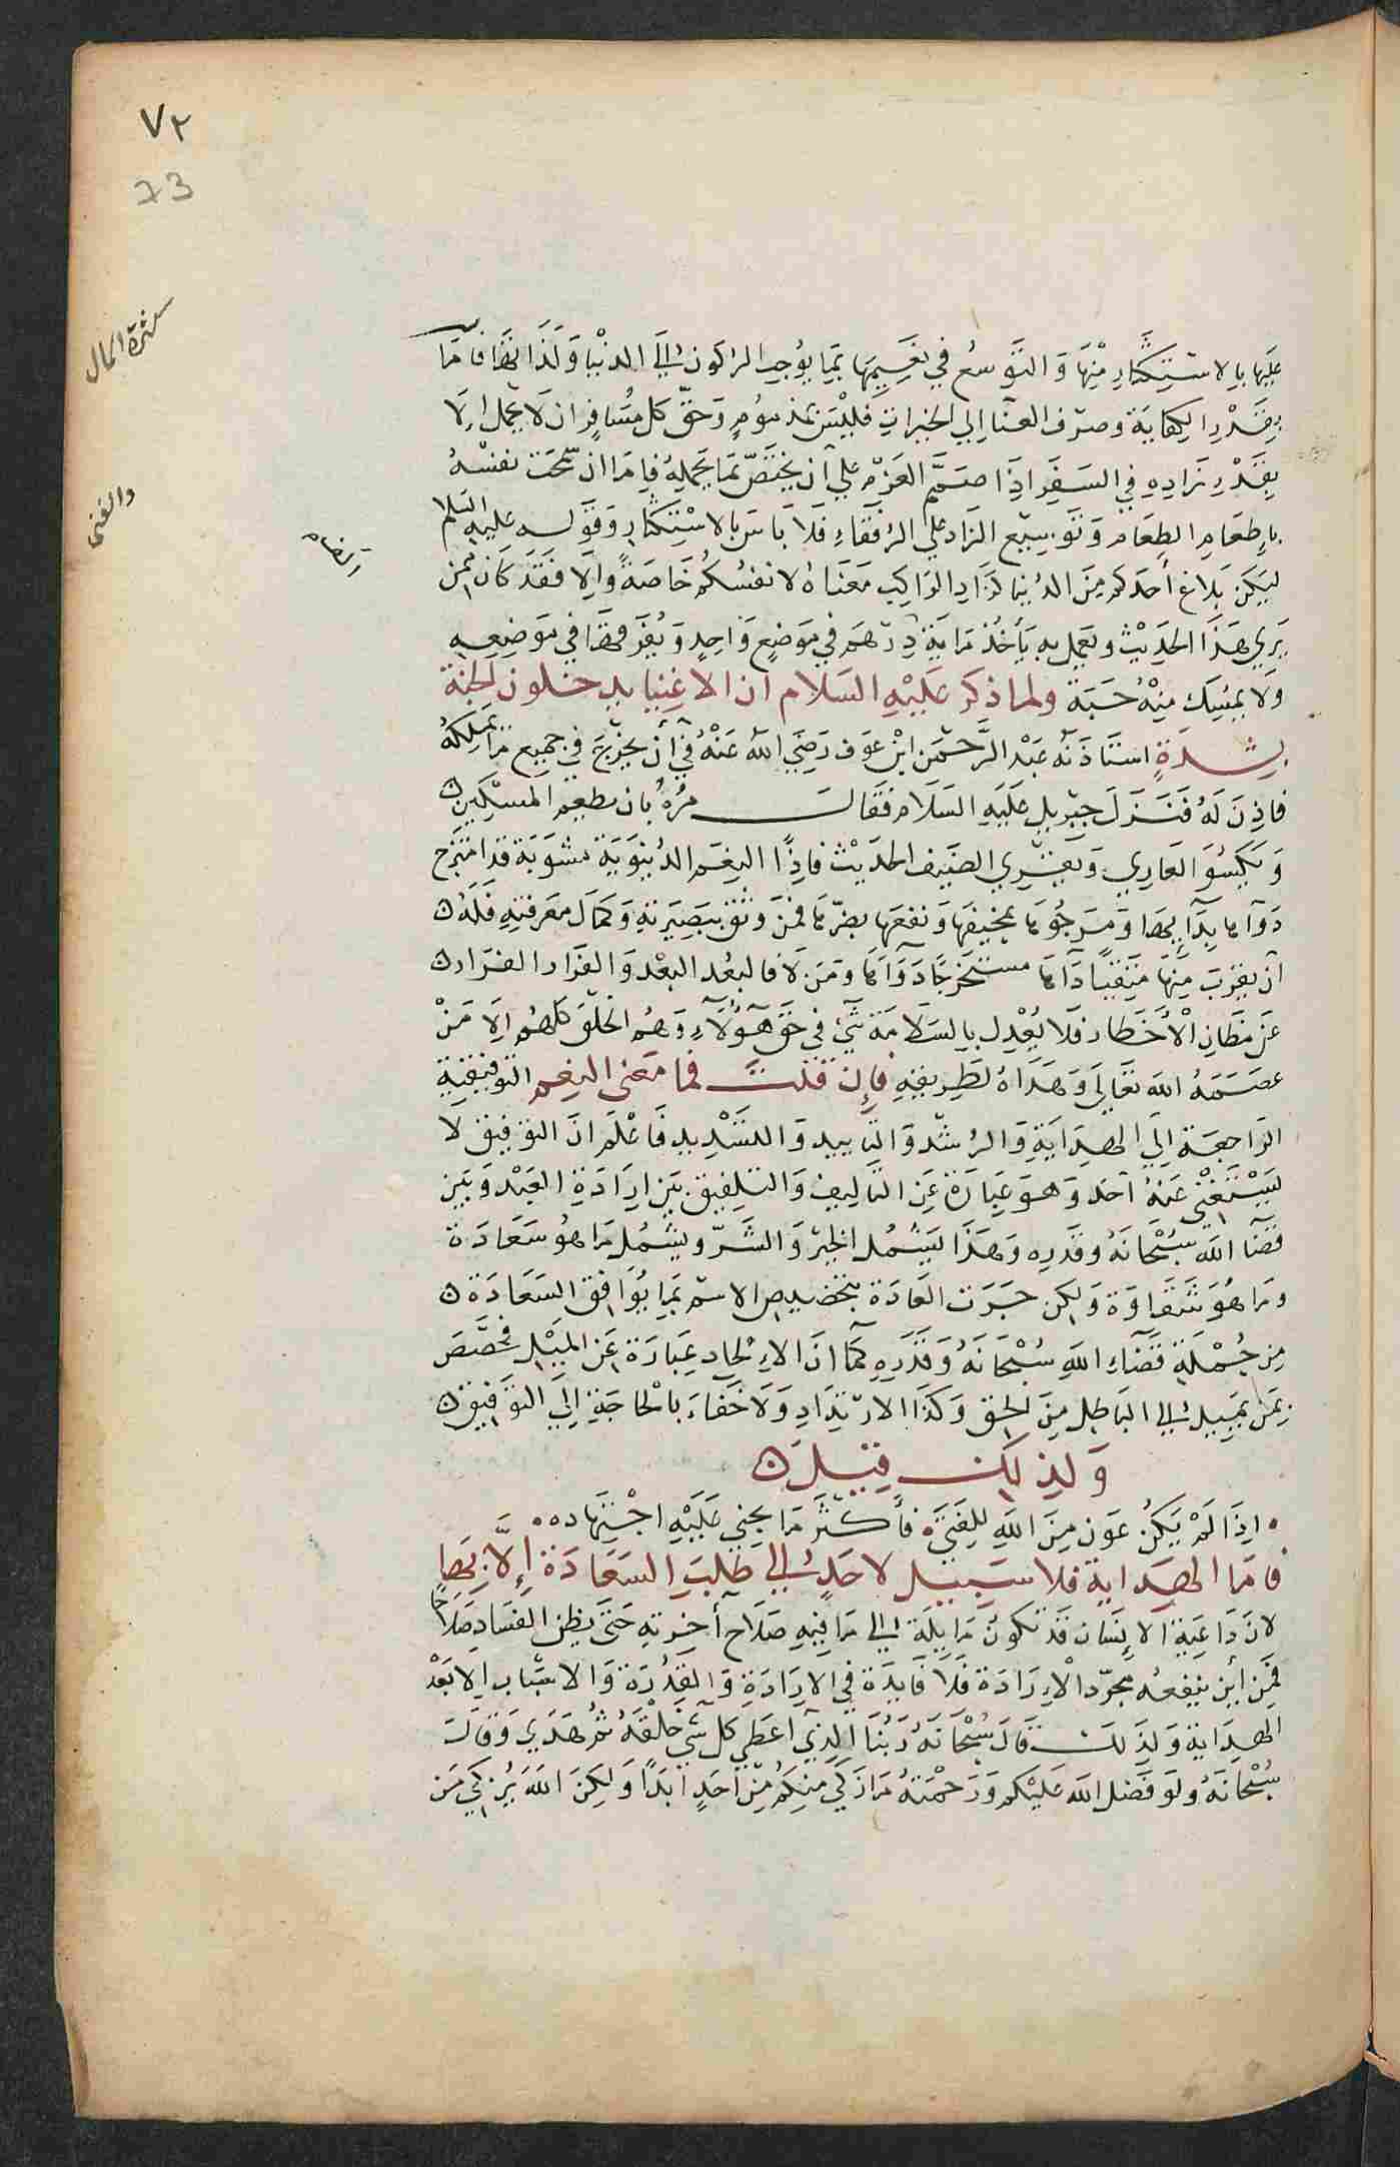 ٧٢
73
كثرة المال
والغنى
عليها بالاستكثار منها والتوسع في نعيمها بما يوجب الركون إلى الدنيا ولذاتها فاما
بقدر الكفاية وصرف العنا إلى الخيرات فليس بمذموم وحق كل مسافر ان لا يحمل الا
بقدر زاده في السفر اذا صمم العزم على أن يختص بما يحمله فاما ان سمحت نفسه
باطعام الطعام وتوسيع الزاد على الرفقاء فلا باس بالاستكثار وقوله عليه السلام
ليكن بلاغ أحدكم من الدنيا كزاد الراكب معناه لانفسكم خاصة وإلا فقد كان ممن
يري هذا الحديث ويعمل به يأخذ مايه درهم في موضع واحد ويفرقها في موضعه
ولا يمسك منه حبة ولما ذكر عليه السلام ان الاغنيا يدخلون الجنة
بشدة استاذنه عبد الرحمن ابن عوف رضي الله عنه في أن يخرج في جميع ما يملكه
فاذن له فنزل جبريل عليه السلام فقال مره بان يطعم المسكين
ويكسو العاري ويقري الضيف الحديث فاذا النعم الدنيوية مشوبة قد امتزج
دواها بدايها ومرجوها بمخيفها ونفعها بضرها فمن وثق ببصيرته وكمال معرفته فله
ان يقرب منها متقيا داها مستخرجا دواها ومن لا فالبعد البعد والفرار الفرار
عن مظان الأخطار فلا يعدل بالسلامة شئ في حق هؤلاء وهم الخلق كلهم الا من
عصمه الله تعالى وهداه لطريقه فإن قلت فما معنى النعم التوفيقية
الراجعة إلى الهداية والرشد والتاييد والتسديد فاعلم ان التوفيق لا
يستغني عنه احد وهو عبارة عن التاليف والتلفيق بين ارادة العبد وبين
قضآ الله سبحانه وقدره وهذا يشمل الخير والشر ويشمل ما هو سعادة
وما هو شقاوة ولكن جرت العادة بتخصيص الاسم بما يوافق السعادة
من جملة قضاء الله سبحانه وقدره كما ان الالحاد عبارة عن الميل فخصص
بمن يميل إلى الباطل من الحق وكذا الارتداد ولا خفاء بالحاجة إلى التوفيق
ولذلك قيل
اذا لم يكن عون من الله للفتى فأكثر ما يجني عليه اجتهاده
فاما الهداية فلا سبيل لاحد إلى طلب السعادة إلا بها
لان داعية الانسان قد تكون مايلة إلى ما فيه صلاح آخرته حتى يظن الفساد صلاحا
فمن أين ينفعه مجرد الارادة فلا فايدة في الارادة والقدرة والاسباب الا بعد
الهداية ولذلك قال سبحانه ربنا الذي اعطى كل شئ خلقه ثم هدى وقال
سبحانه ولو فضل الله عليكم ورحمته ما زكى منكم من أحد ابدا ولكن الله يزكي من